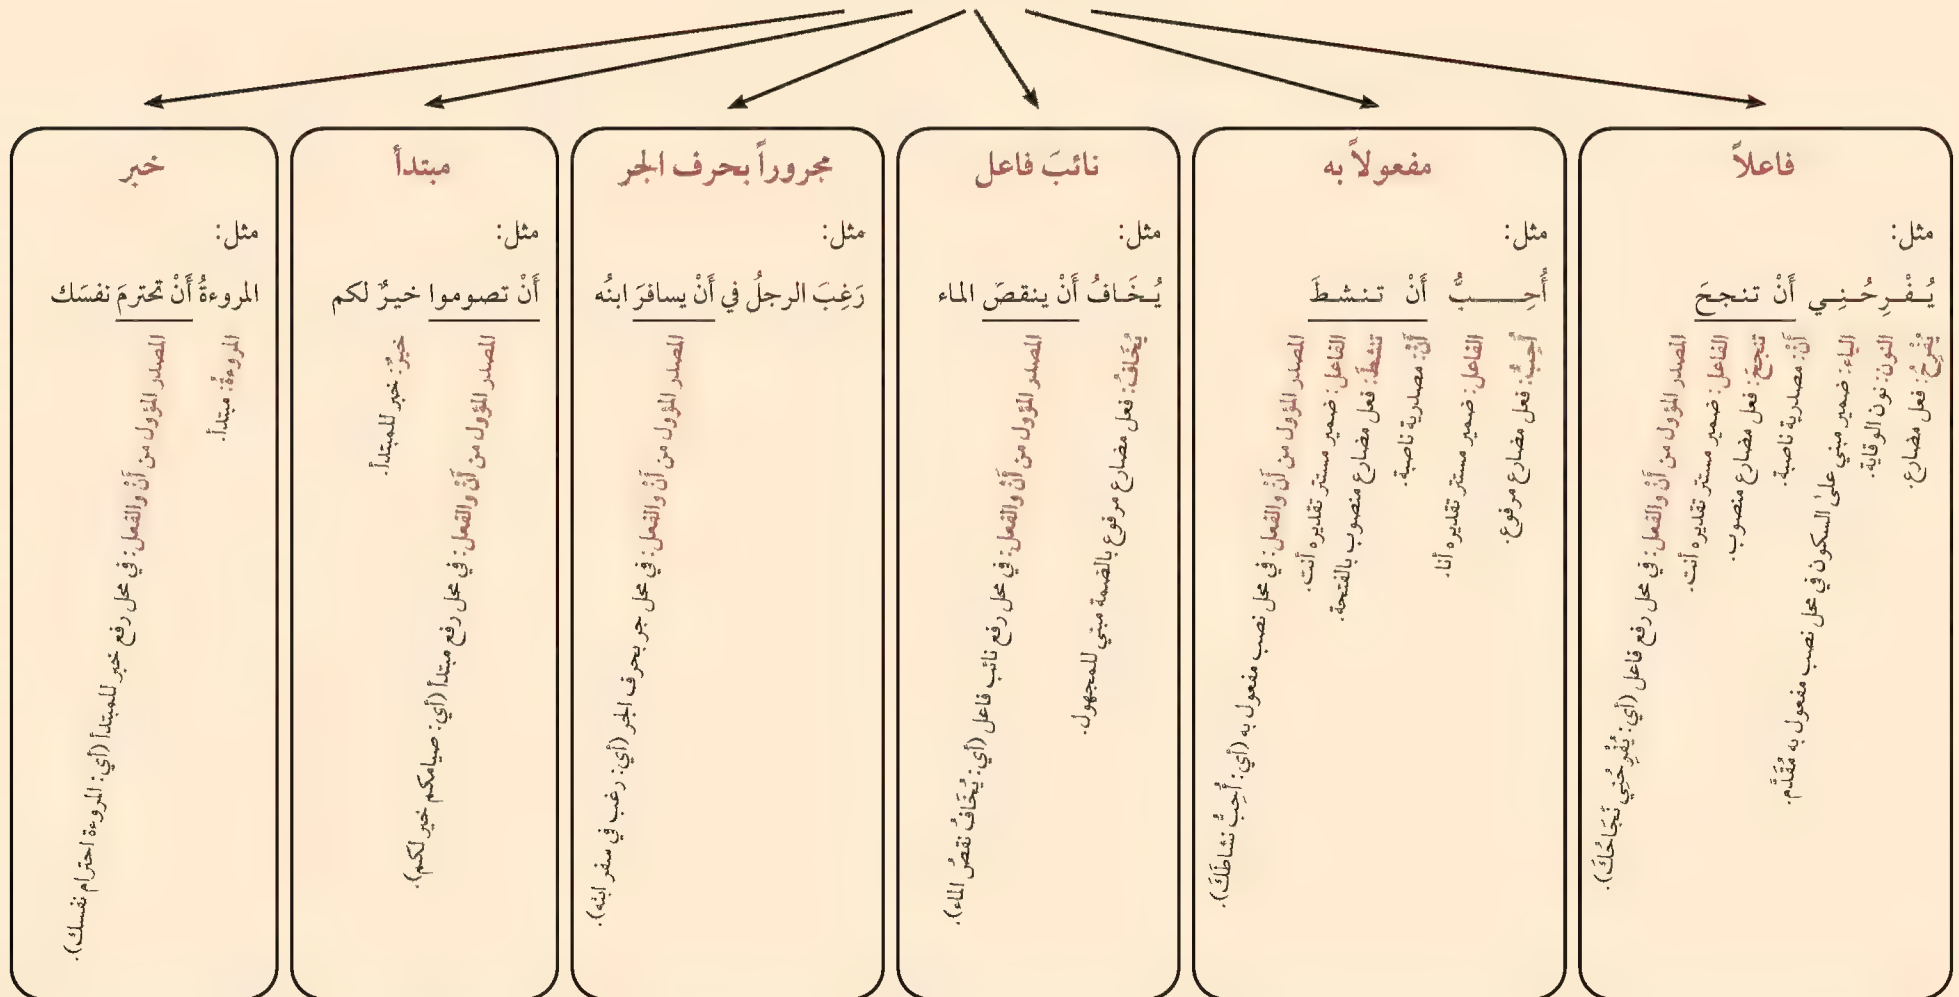 فاعلاً
مثل:
يُفْرِحُنِي أَنْ تنجحَ
يُفْرِحُ: فعل مضارع.
النون: نون الوقاية.
الياء: ضمير مبني على السكون في محل نصب مفعول به مُقَدَّم.
أَنْ: مصدرية ناصبة.
تنجحَ: فعل مضارع منصوب.
الفاعل: ضمير مستتر تقديره أنت.
المصدر المؤول من أَنْ والفعل: في محل رفع فاعل (أي: يُفْرِحُنِي نَجَاحُكَ).
مفعولاً به
مثل:
أُحِبُّ أَنْ تنشطَ
أُحِبُّ: فعل مضارع مرفوع.
الفاعل: ضمير مستتر تقديره أنا.
أَنْ: مصدرية ناصبة.
تنشطَ: فعل مضارع منصوب بالفتحة.
الفاعل: ضمير مستتر تقديره أنت.
المصدر المؤول من أَنْ والفعل: في محل نصب مفعول به (أي: أُحِبُّ نشاطَكَ).
نائبَ فاعل
مثل:
يُخَافُ أَنْ ينقصَ الماء
يُخَافُ: فعل مضارع مرفوع بالضمة مبني للمجهول.
المصدر المؤول من أَنْ والفعل: في محل رفع نائب فاعل (أي: يُخَافُ نقصُ الماء).
مجروراً بحرف الجر
مثل:
رَغِبَ الرجلُ في أَنْ يسافرَ ابنُه
المصدر المؤول من أَنْ والفعل: في محل جر بحرف الجر (أي: رغب في سفر ابنه).
مبتدأ
مثل:
أَنْ تصوموا خيرٌ لكم
المصدر المؤول من أَنْ والفعل: في محل رفع مبتدأ (أي: صيامكم خير لكم).
خيرٌ: خبر للمبتدأ.
خبر
مثل:
المروءةُ أَنْ تحترمَ نفسَك
المروءةُ: مبتدأ.
المصدر المؤول من أَنْ والفعل: في محل رفع خبر للمبتدأ (أي: المروءة احترام نفسك).